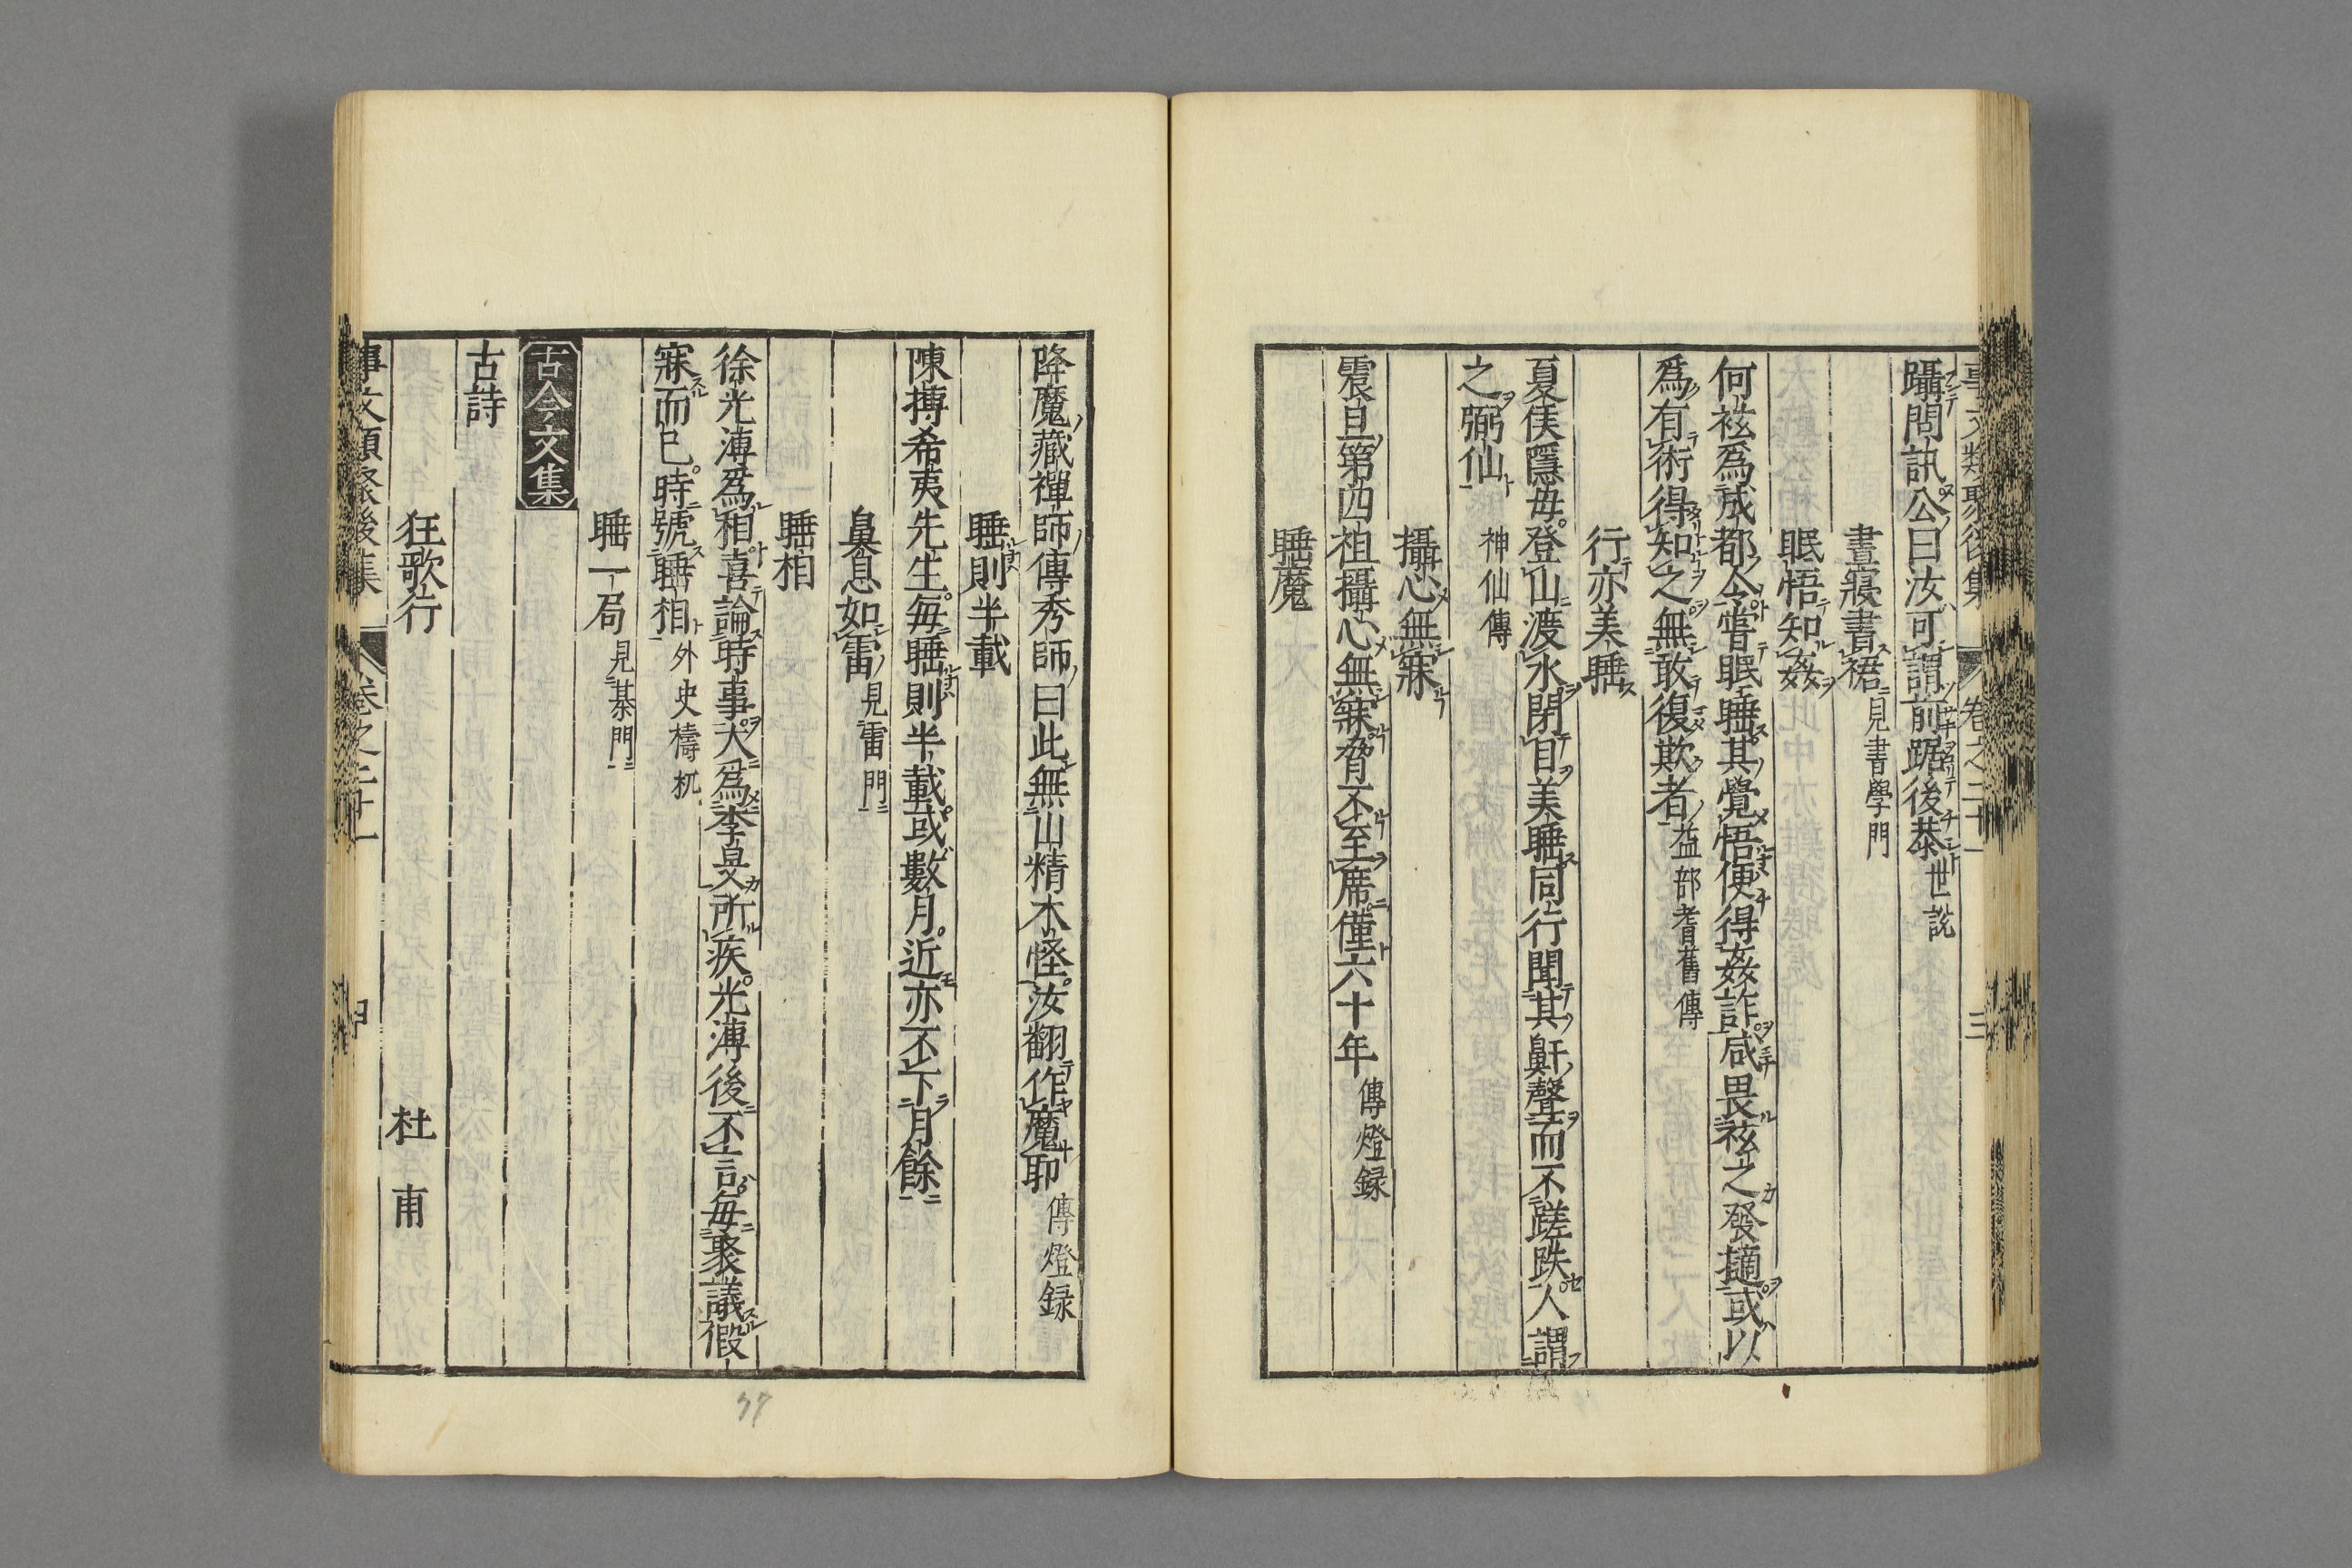 事文類聚後集 卷之二十一 三
躡問訊公曰汝可謂前踞後恭世說
晝寢書裙見書學門
眠悟知姦
何祗爲成都令嘗眠睡其覺悟便得姦詐咸畏祗之發擿或以
爲有術得知之無敢復欺者益部耆舊傳
行亦美睡
夏侯隱每登山渡水閉目美睡同行聞其鼾聲而不蹉跌人謂
之弻仙神仙傳
攝心無寐
震旦第四祖攝心無寐脅不至席僅六十年傳燈録
睡魔
降魔藏禪師傳秀師曰此無山精木怪汝翻作魔耶傳燈録
睡則半載
陳摶希夷先生每睡則半載或數月近亦不下月餘
鼻息如雷見雷門
睡相
徐光溥爲相喜論時事大爲李昊所疾光溥後不言每聚議假
寐而已時號睡相外史檮杌
睡一局見棊門
古今文集
古詩
狂歌行 杜甫
事文類聚後集 卷之二十一